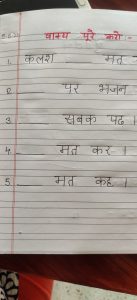 वाक्य पूरे करो :-
1. कलश ___ मत
2. ___ पर भजन
3. ___ सबक पढ ।
4. ___ मत कर ।
5. ___ मत कह ।